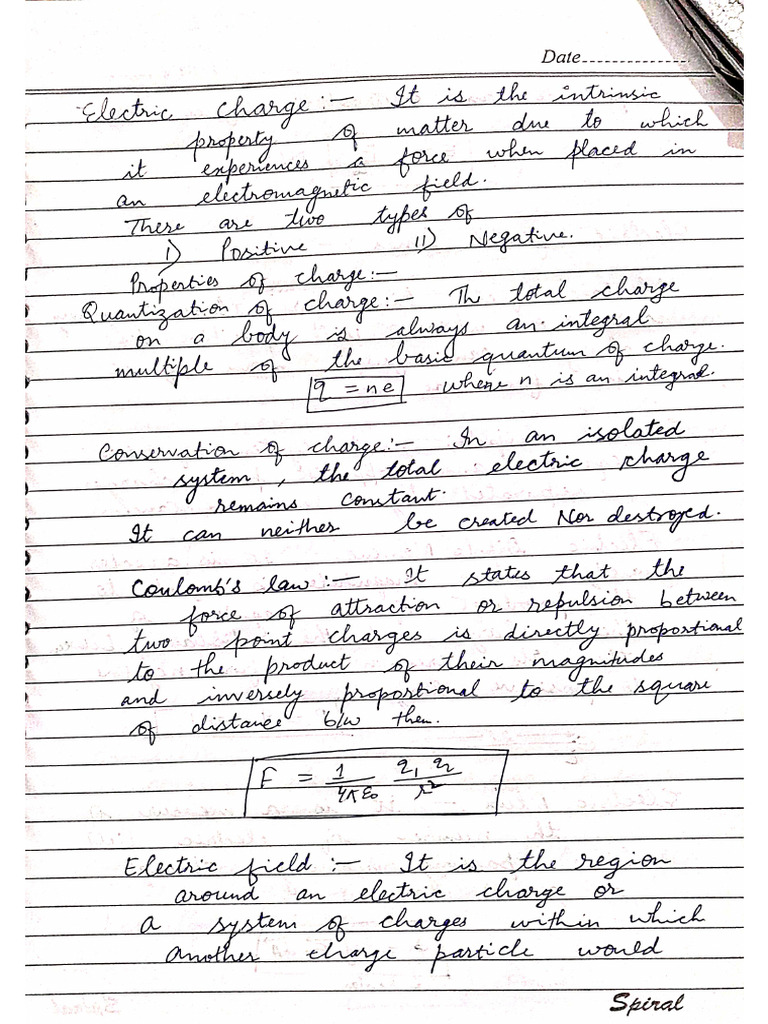 Date
Electric charge :- It is the intrinsic
property of matter due to which
it experiences a force when placed in
an electromagnetic field.
There are two types of
i) Positive ii) Negative.
Properties of charge :-
Quantization of charge :- Th total charge
on a body is always an integral
multiple of the basic quantum of charge.
q = ne where n is an integral.
Conservation of charge :- In an isolated
system, the total electric charge
remains constant.
It can neither be created Nor destroyed.
Coulomb's law :- It states that the
force of attraction or repulsion between
two point charges is directly proportional
to the product of their magnitudes
and inversely proportional to the square
of distance b/w them.
F = 1/4πε₀ q₁ q₂/r²
Electric field :- It is the region
around an electric charge or
a system of charges within which
another charge particle would
Spiral